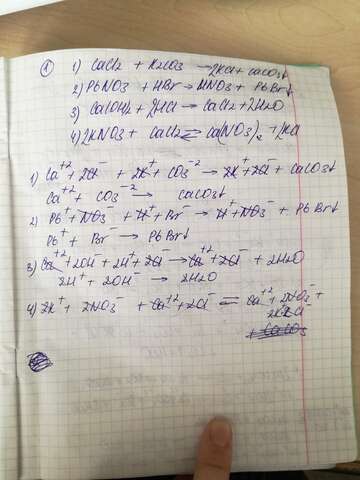 ① 1) CaCl2 + K2CO3 → 2KCl + CaCO3↓
2) PbNO3 + HBr → HNO3 + PbBr↓
3) Ca(OH)2 + 2HCl → CaCl2 + 2H2O
4) 2KNO3 + CaCl2 ⇄ Ca(NO3)2 + 2KCl
1) Ca+2 + 2Cl- + 2K+ + CO3-2 → 2K+ + 2Cl- + CaCO3↓
Ca+2 + CO3-2 → CaCO3↓
2) Pb+ + NO3- + H+ + Br- → H+ + NO3- + PbBr↓
Pb+ + Br- → PbBr↓
3) Ca+2 + 2OH- + 2H+ + 2Cl- → Ca+2 + 2Cl- + 2H2O
2H+ + 2OH- → 2H2O
4) 2K+ + 2NO3- + Ca+2 + 2Cl- ⇄ Ca+2 + 2NO3- +
2K+ 2Cl-
+ CaCO3